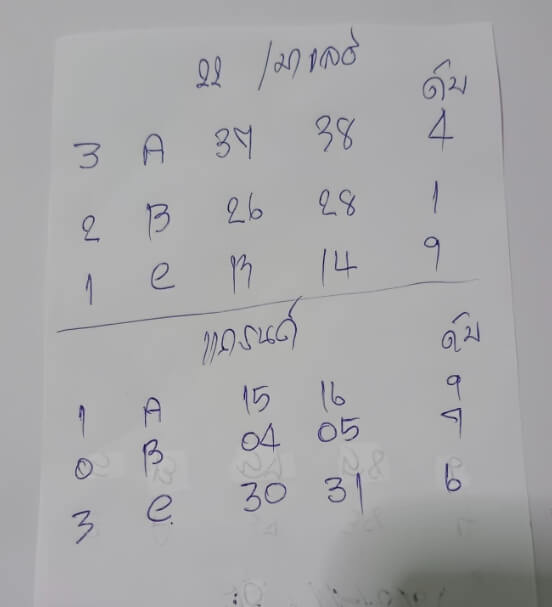 22 /มาเลย์
ดับ
3 A 37 38 4
2 B 26 28 1
1 C 13 14 9
แกรนด์ ดับ
1 A 15 16 9
0 B 04 05 7
3 C 30 31 6